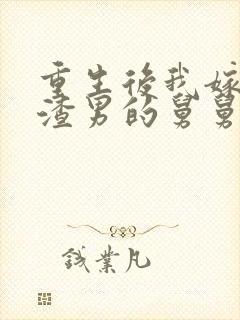 重生後我嫁
渣男的舅舅
钱業凡